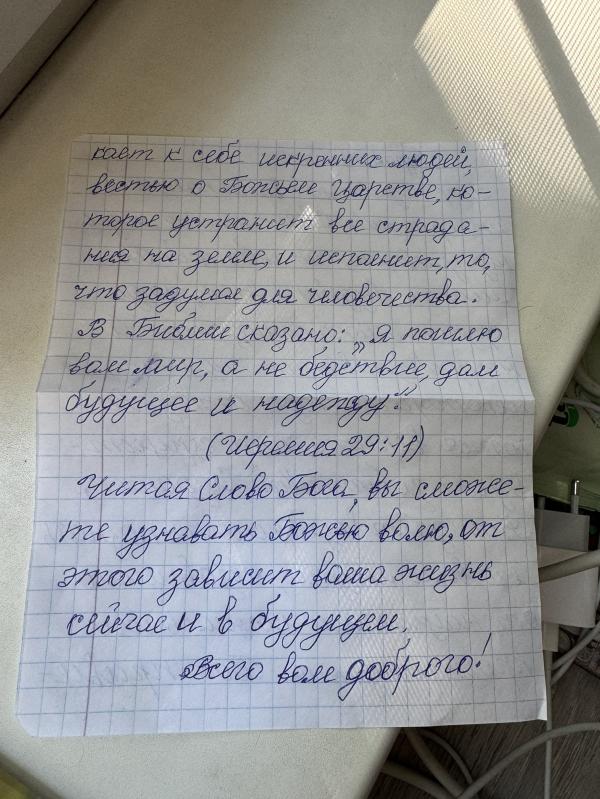 кает к себе искренних людей,
вестью о Божьем Царстве, ко-
торое устранит все страда-
ния на земле, и исполнит, то,
что задумал для человечества.
В Библии сказано: „Я пошлю
вам мир, а не бедствие, дам
будущее и надежду."
(Иеремия 29:11)
Читая Слово Бога, вы сможе-
те узнавать Божью волю, от
этого зависит ваша жизнь
сейчас и в будущем.
Всего вам доброго!